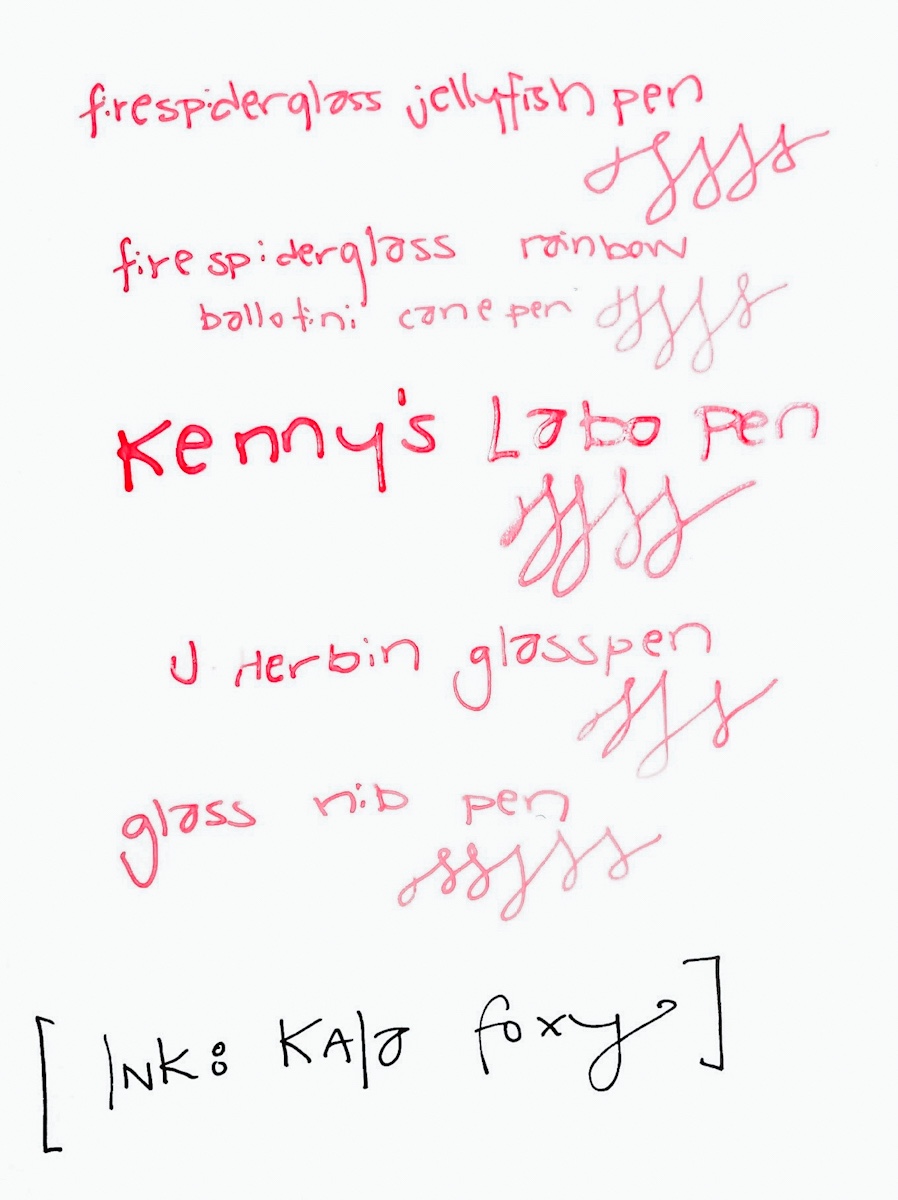 firespiderglass jellyfish pen
firespiderglass rainbow
ballotini cane pen
Kenny's Labo pen
J Herbin glass pen
glass nib pen
[INK: KAla foxy]